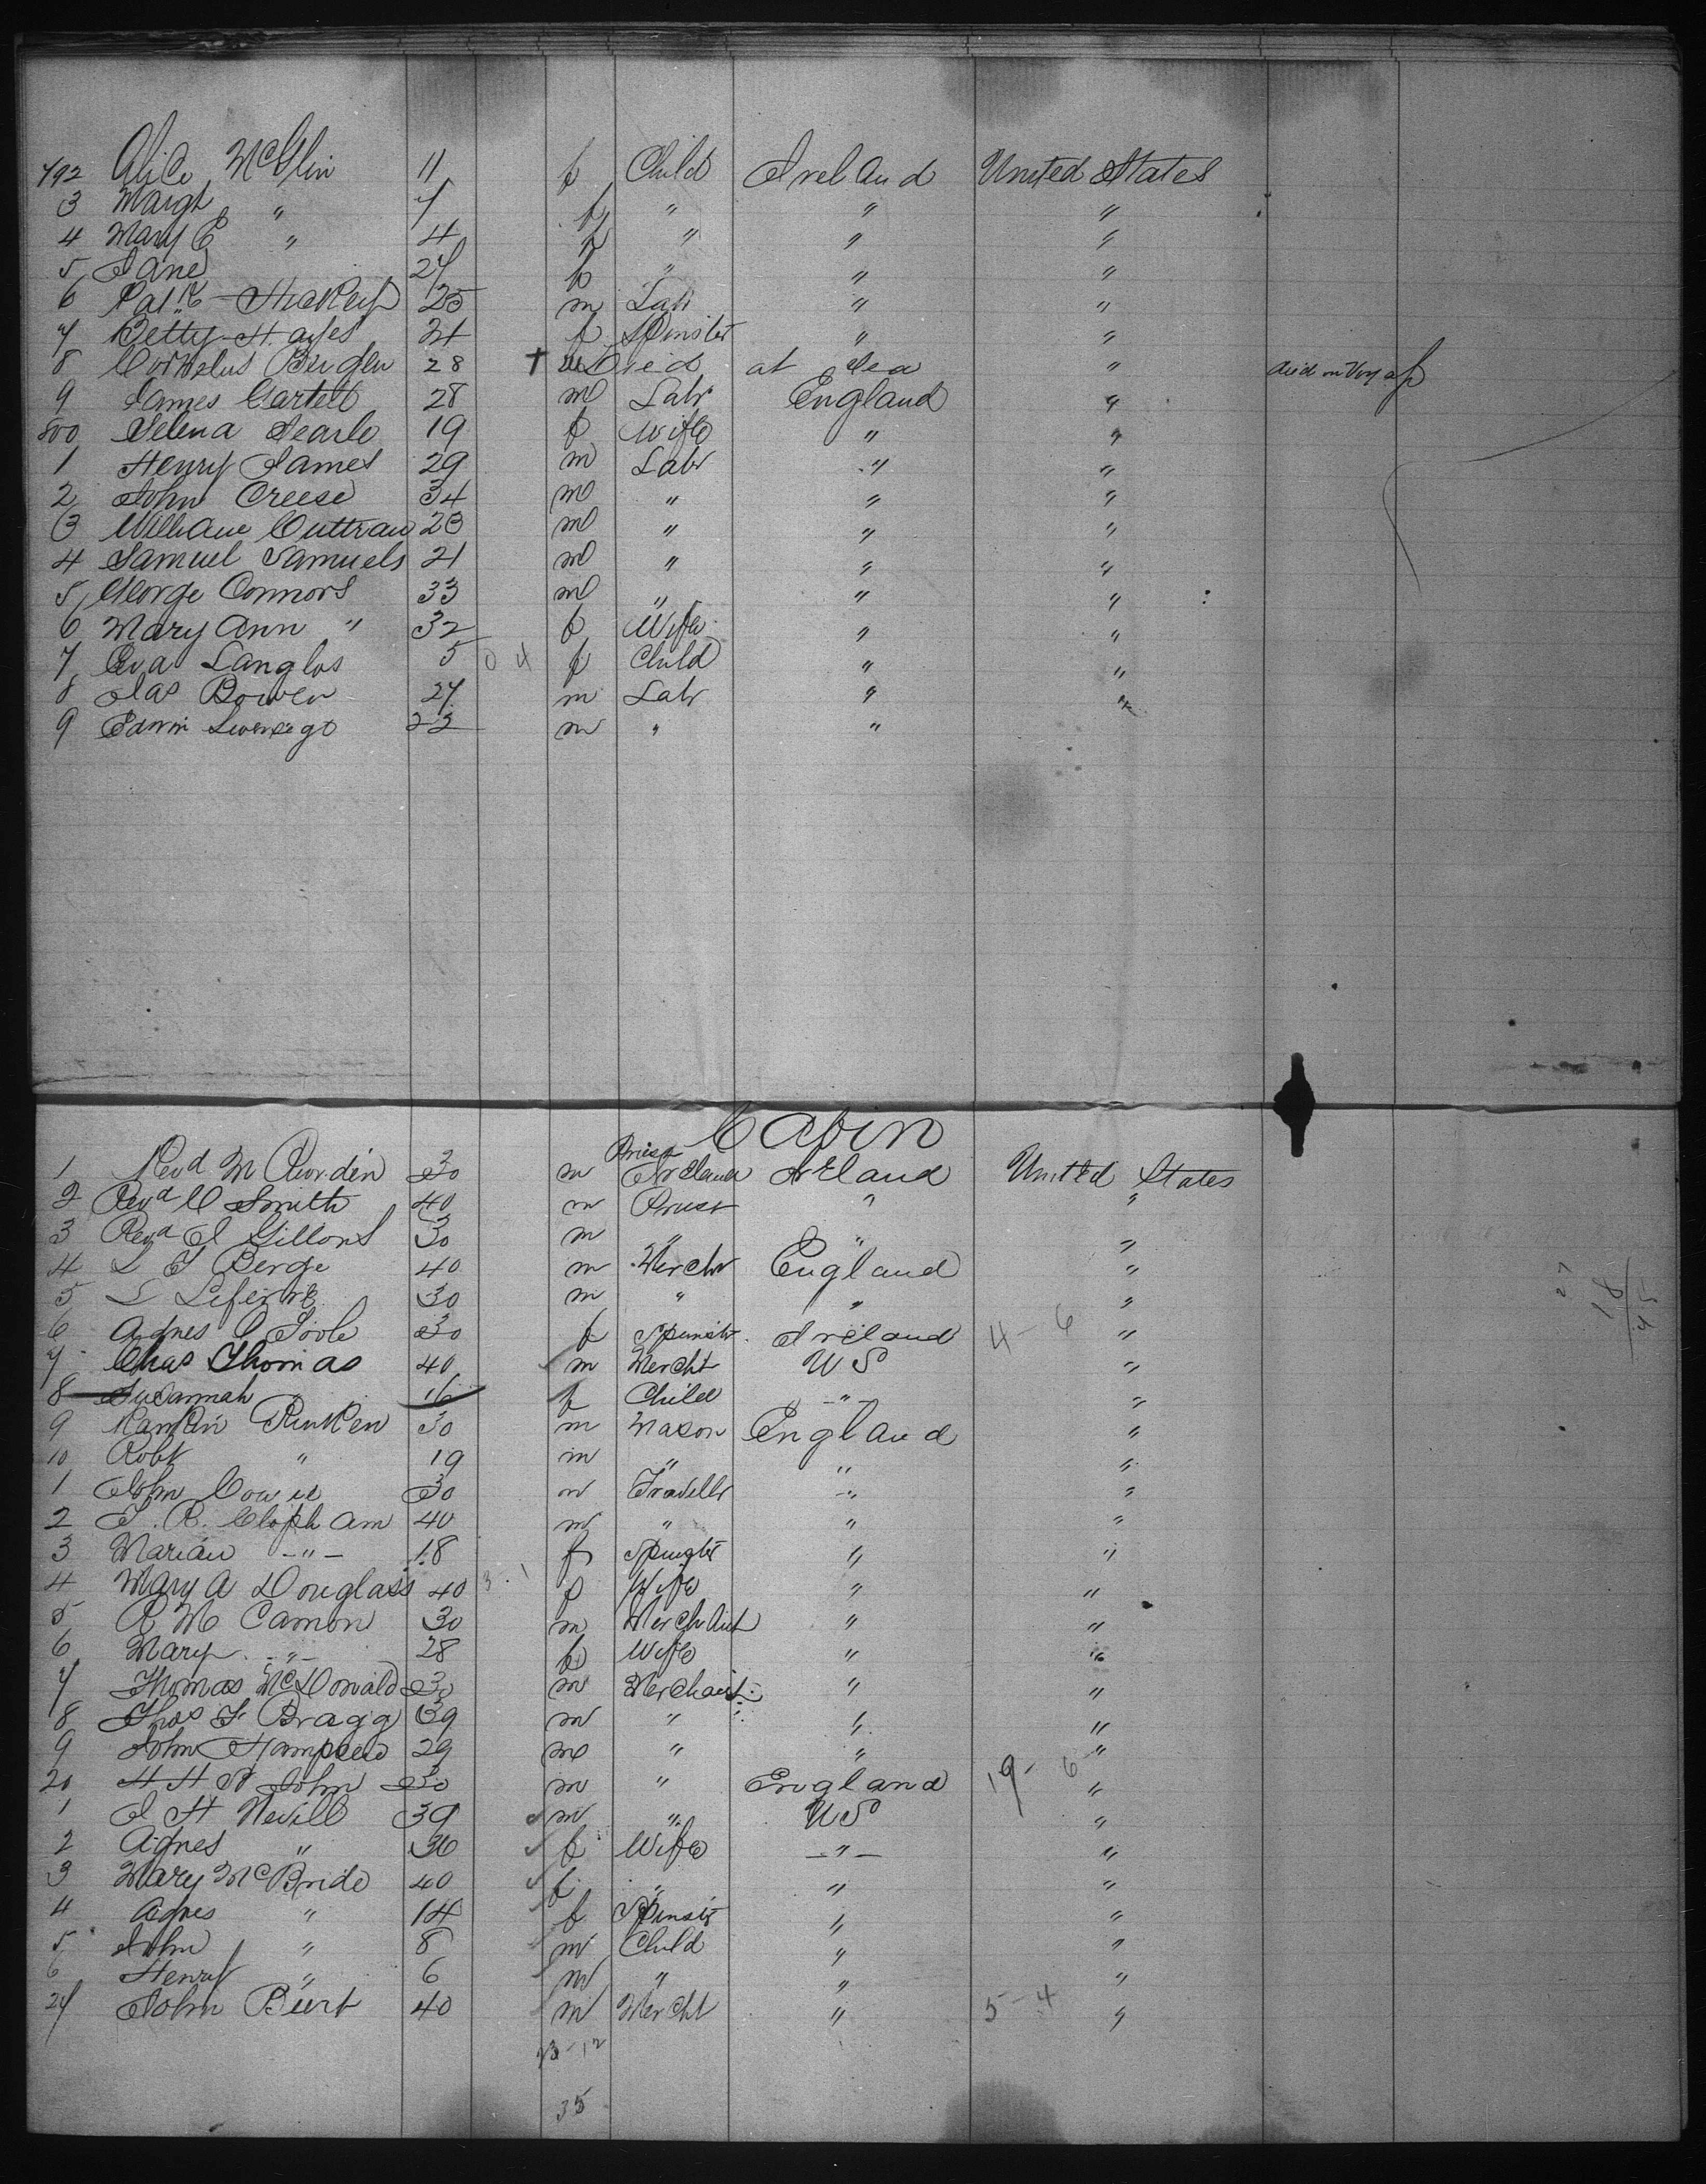 792 Alice McGlin 11 f Child Ireland United States
3 Margt " 7 f " " "
4 Mary E " 4 f " " "
5 Jane 27 f " " "
6 Patk Hickey 25 m Labr " "
7 Betty Hayes 21 f Spinster " "
8 Cornelus Berglen 28 + Died at Sea " died on Voyage
9 James Gartell 28 m Labr England "
800 Selena Searle 19 f Wife " "
1 Henry James 29 m Labr " "
2 John Creese 34 m " " "
3 William Cuttran 23 m " " "
4 Samuel Samuels 21 m " " "
5 George Connors 33 m " " "
6 Mary Ann " 32 f Wife " "
7 Eva Langlos 5 0 4 f Child " "
8 Jas Bowen 27 m Labr " "
9 Edwin 22 m " "
Cabin
Priest
1 Revd M Riordin 30 m Ireland Ireland United States
2 Revd C Smith 40 m Priest " "
3 Revd J Gillons 30 m " " "
4 L J Berge 40 m Mercht England "
5 L Lefevre 30 m " " "
6 Agnes O Toole 30 f Spinstr Ireland 4-6 "
7 Chas Thomas 40 m Mercht US "
8 Susannah 16 f Child " "
9 Rankin 30 m Mason England "
10 Robt " 19 m " " "
1 John Cowie 30 m Traveller " "
2 T. R. Clopham 40 m " " "
3 Marian " 18 f Spinster " "
4 Mary A Douglass 40 3-1 f Wife " "
5 R M Camon 30 m Merchant " "
6 Mary " 28 f Wife " "
7 Thomas McDonald 30 m Merchant " "
8 Thos F Bragg 39 m " " "
9 John Hampsen 29 m " " "
20 H H St John 30 m " England 19-6 "
1 J H Nevill 39 m " US "
2 Agnes " 36 f Wife " "
3 Mary McBride 40 f " " "
4 Agnes " 14 f Spinstr " "
5 John " 8 m Child " "
6 Henry " 6 m " " "
27 John Burt 40 m Mercht " 5-4 "
23-12
35